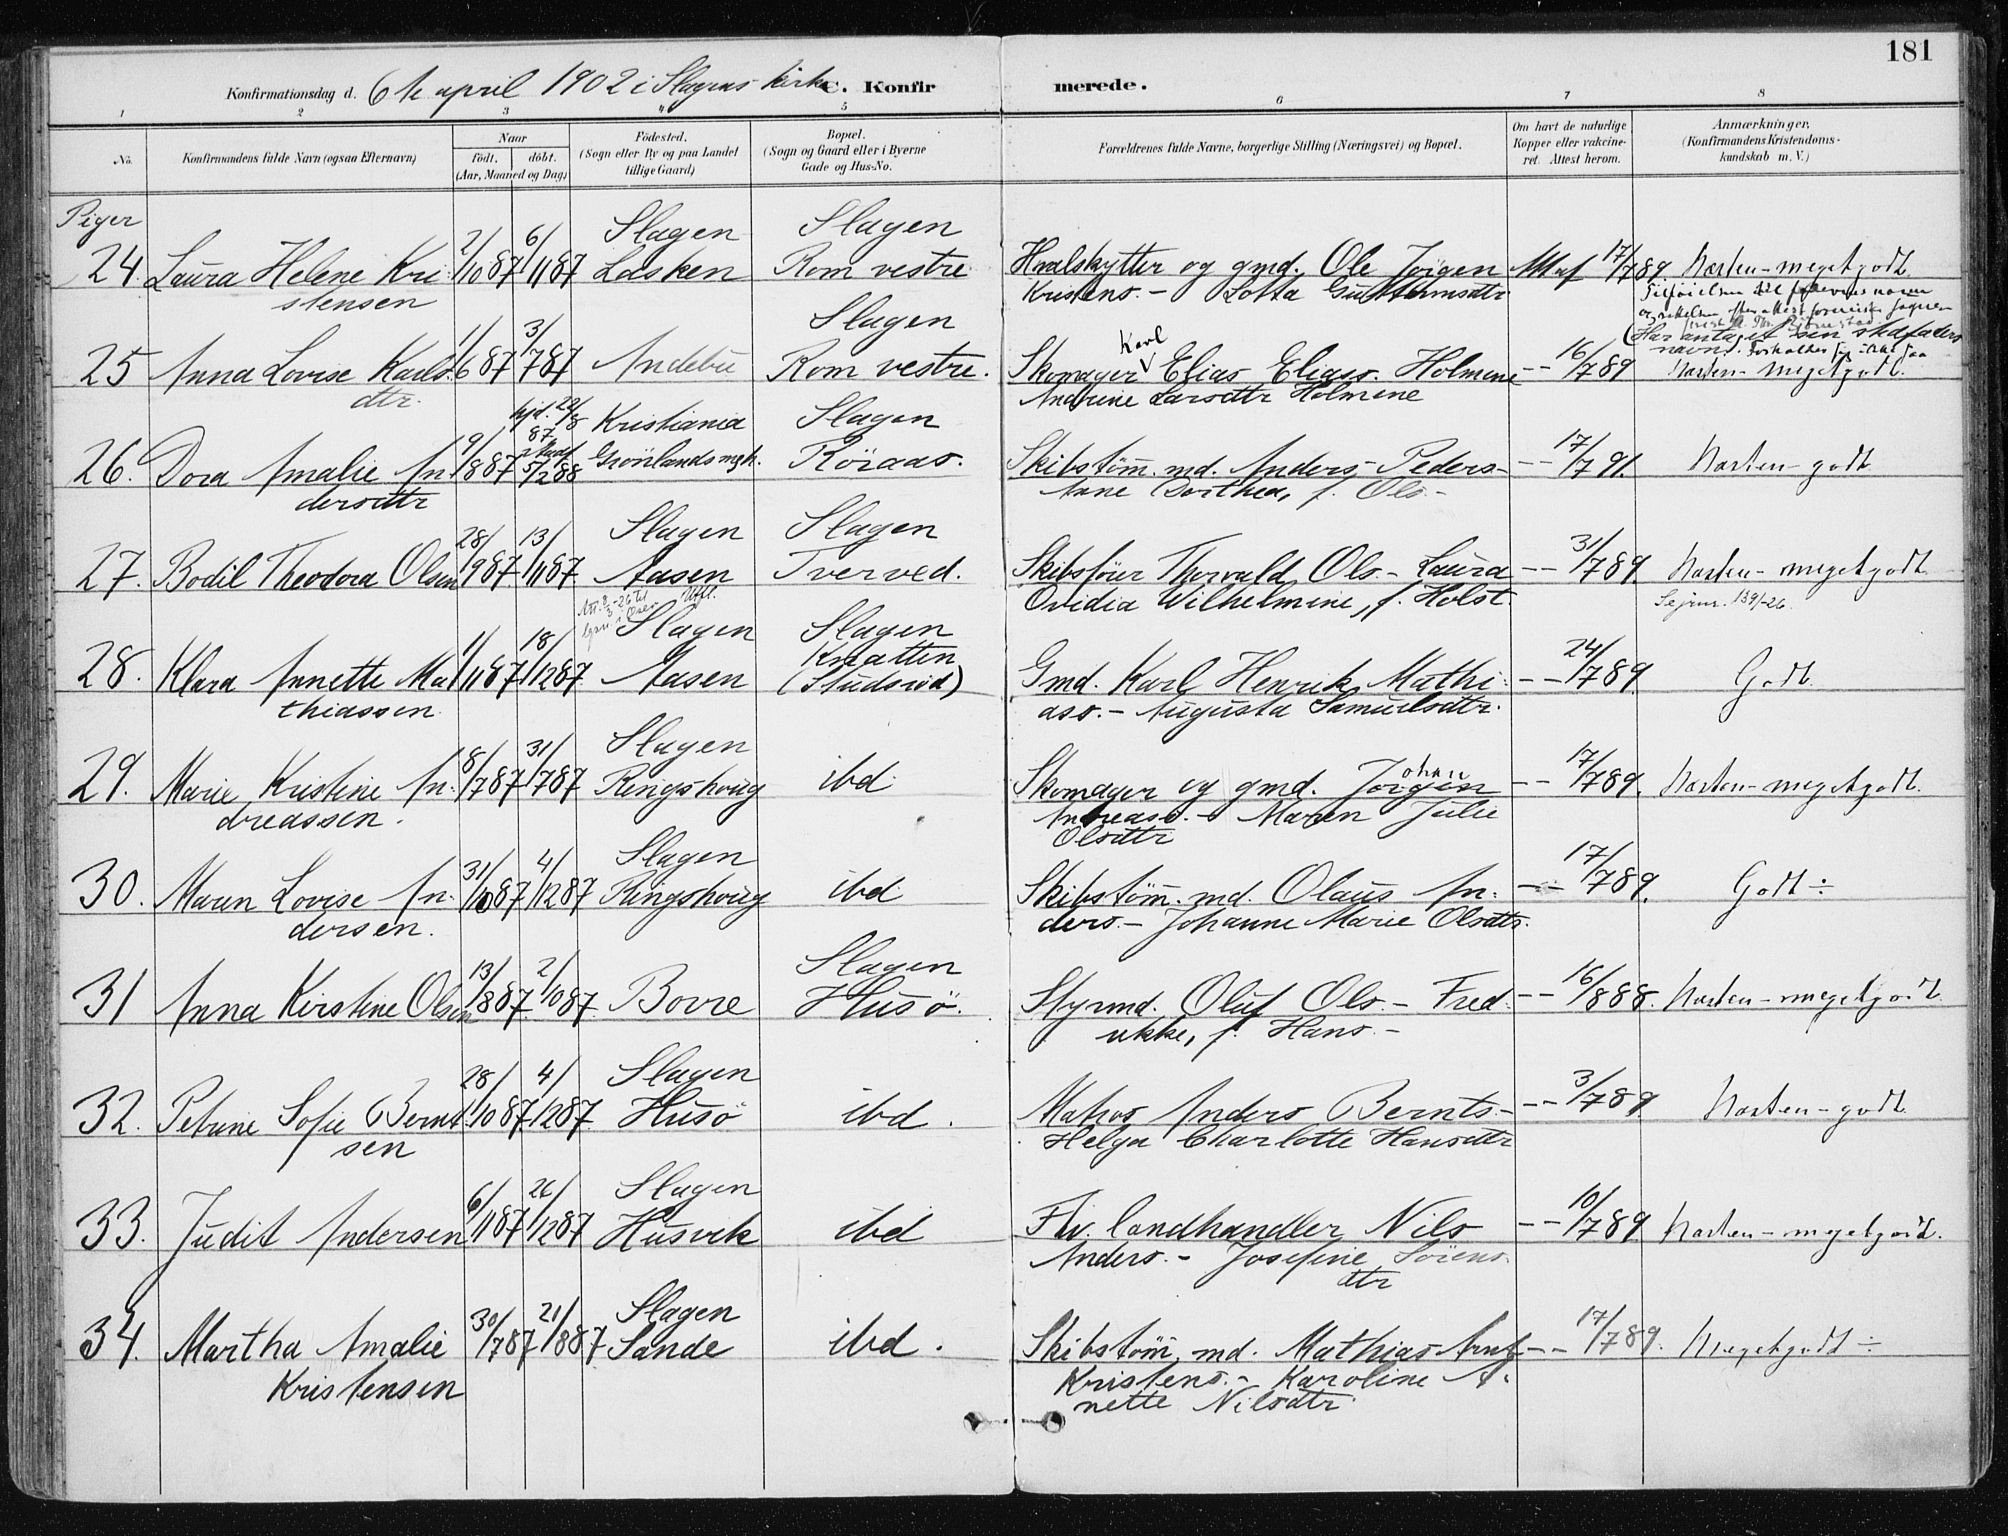 181
Konfirmationsdag d. 6te april 1902 i Slagens kirke C. Konfirmerede.
1 2 3 4 5 6 7 8
No. Konfirmandens fulde Navn (ogsaa Efternavn) Naar født. døbt. (Aar, Maaned og Dag) Fødested. (Sogn eller By og paa Landet tillige Gaard) Bopæl. (Sogn og Gaard eller i Byerne Gade og Hus-No. Forældrenes fulde Navne, borgerlige Stilling (Næringsvei) og Bopæl. Om havt de naturlige Kopper eller vakcineret. Attest herom. Anmærkninger. (Konfirmandens Kristendomskundskab m. V.)
Piger
Slagen Slagen
24. Laura Helene Kri- 2/10 87 6/11 87 Løsken Rom vestre Hvalskytter og gmd. Ole Jørgen Maf 17/7 89 Næsten-megetgodt
stensen Kristens. - Lotta
Slagen
25 Anna Lovise Karls- 1/6 87 3/7 87 Andebu Rom vestre. Skomager Karl Elias Eliass. Holmene -- 16/7 89 Næsten-megetgodt.
dtr. Andrine Larsdtr Holmene (Har antaget sin stedfaders navn.
hjd. 22/8 87 Kristiania Slagen
26. Dora Amalie An- 9/8 87 5/2 88 Grønlands mgh. Røraas. Skibstøm. md. Anders Peders- -- 17/7 91. Næsten-godt
dersdtr Anne Dorthea, f. Ols.-
Slagen Slagen
27. Bodil Theodora Olsen 28/9 87 13/11 87 Aasen Tverved. Skibsfører Thorvald Ols.- Laura -- 31/7 89 Næsten-megetgodt
Ovidia Wilhelmine, f. Holst. 139/26.
Slagen Slagen
28. Klara Annette Ma- 1/11 87 18/12 87 Aasen Knatten (Studsrød) Gmd. Karl Henrik Mathi- -- 24/7 89 Godt.
thiassen ass.- Augusta Samuelsdtr.
Slagen
29. Marie Kristine An- 8/7 87 31/7 87 Ringshoug ibd Skomager og gmd. Johan Jørgen -- 17/7 89. Næsten-megetgodt.
dreassen. Andreass.- Maren Julie
Olsdtr
Slagen
30. Maren Lovise An- 31/10 87 4/12 87 Ringshoug ibd Skibstøm. md. Olaus An- -- 17/7 89. Godt ÷
dersen. ders.- Johanne Marie Olsdtr.
Slagen
31 Anna Kirstine Olsen 13/8 87 2/10 87 Borre Husø. Styrmd. Oluf Ols.- Fred- -- 16/8 88. Næsten-megetgodt
rikke, f. Hans.-
Slagen
32. Petrine Sofie Bernt- 28/10 87 4/12 87 Husø ibd. Matros Anders Bernts.- -- 3/7 89 Næsten-godt
sen Helga Charlotte Hansdtr
Slagen
33. Judit Andersen 6/11 87 26/12 87 Husvik ibd Fhv. landhandler Nils -- 10/7 89 Næsten-megetgodt.
Anders.- Josefine Sørens-
dtr
Slagen
34. Martha Amalie 30/7 87 21/8 87 Sande ibd. Skibstøm. md. Mathias Arnt -- 17/7 89. Megetgodt ÷
Kristensen Kristens.- Karoline A-
nette Nilsdtr.